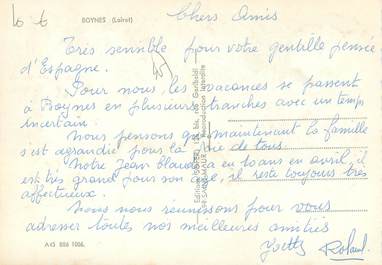 BOYNES (Loiret)
Chers Amis
Très sensible pour votre gentille pensée
d'Espagne.
Pour nous, les vacances se passent
à Boynes en plusieurs tranches avec un temps
incertain.
Nous pensons que maintenant la famille
s'est agrandie pour la joie de tous.
Notre Jean Claude a eu 10 ans en avril, il
est très grand pour son âge, il reste toujours très
affectueux.
Nous nous réunissons pour vous
adresser toutes nos meilleures amitiés
Yvette Roland
AG 886 1006.